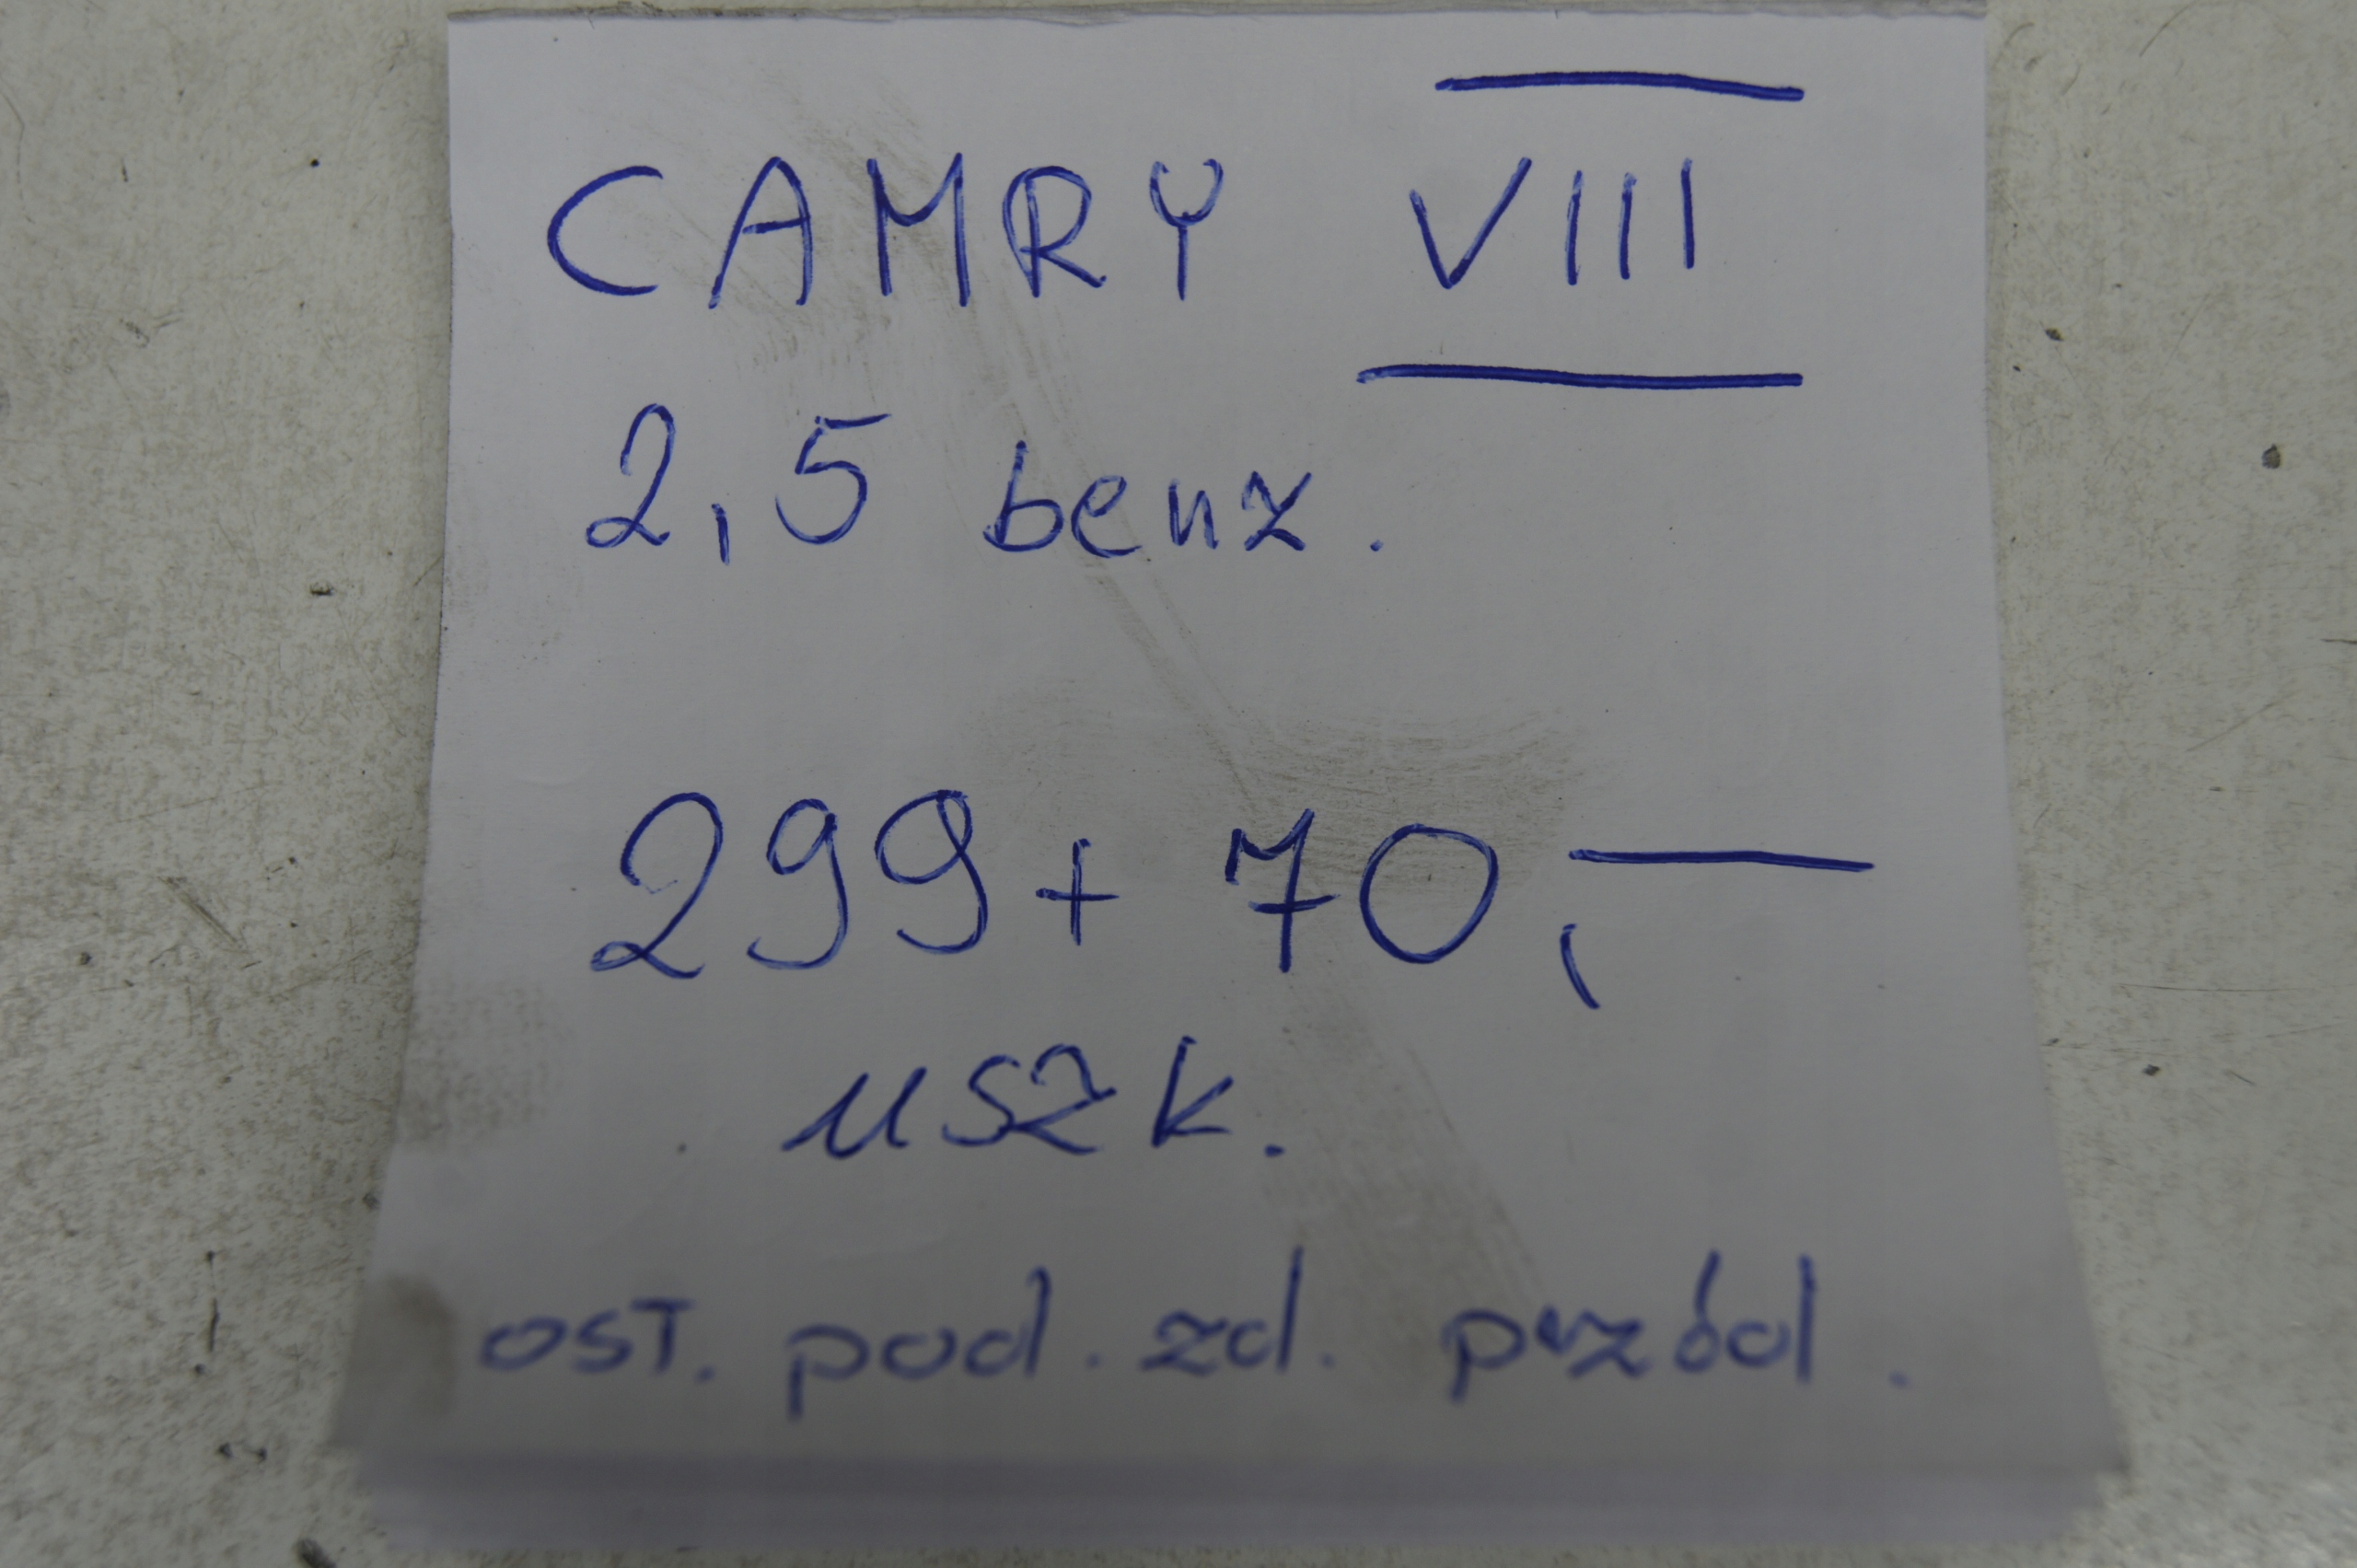 CAMRY VIII
2,5 benz.
299+ 70,-
uszk.
ost. pod. zd. przód.